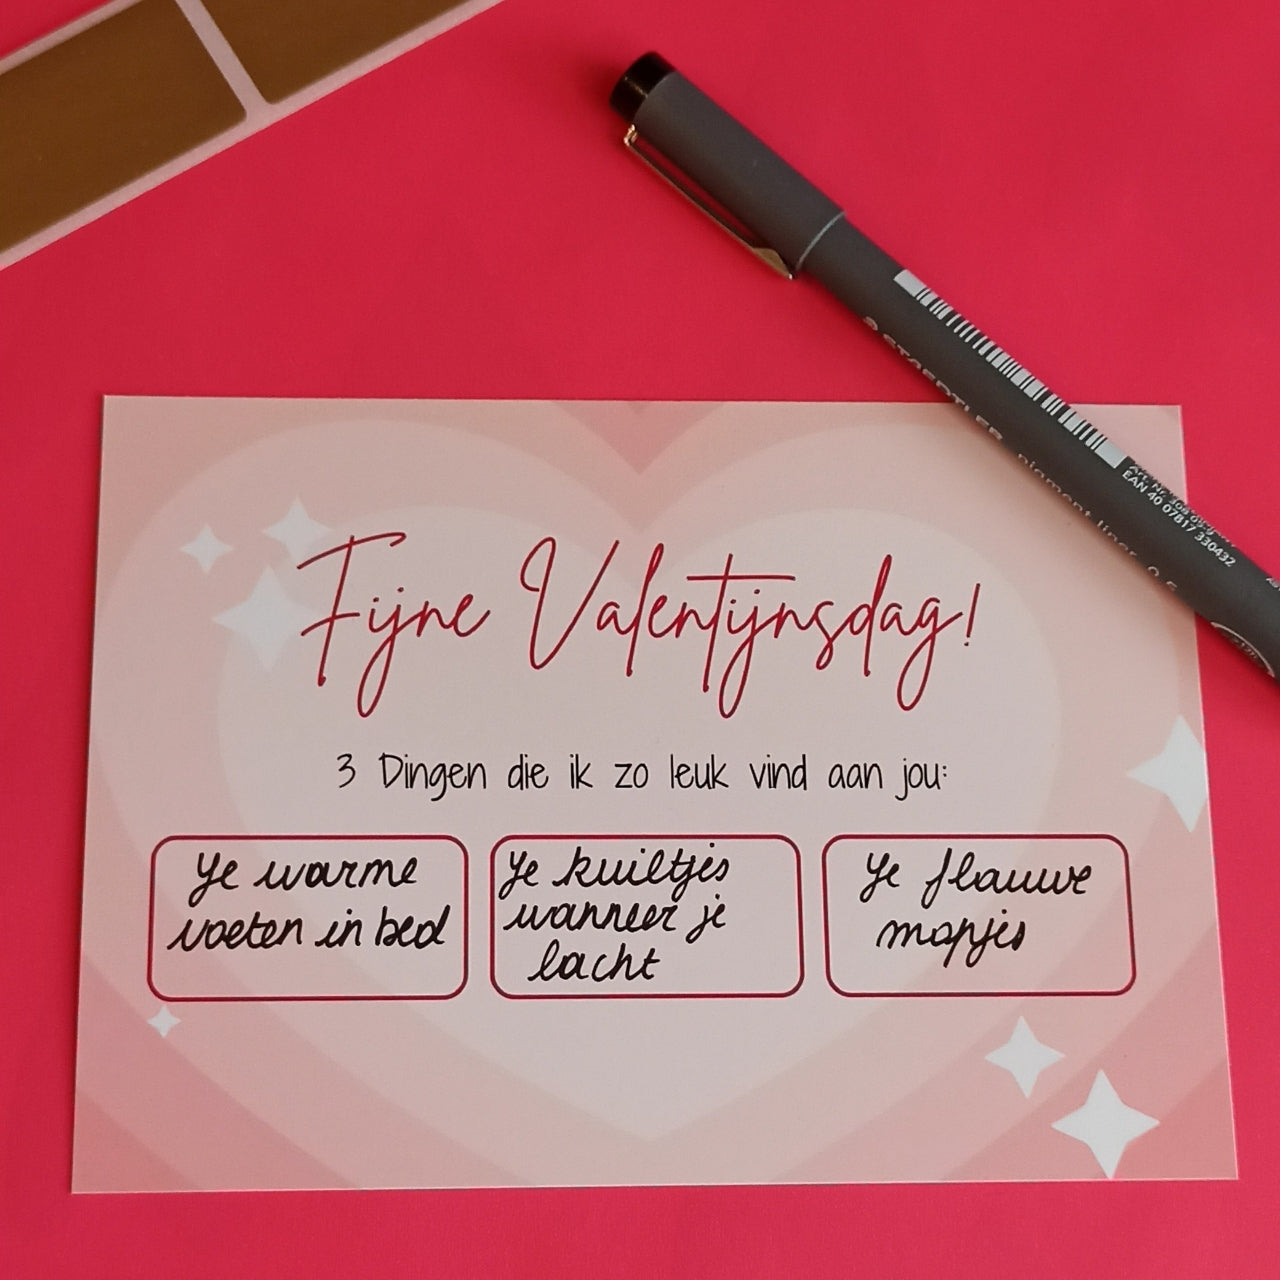 STAEDTLER pigment liner 0.5
EAN 40 07817 330432
Fijne Valentijnsdag!
3 Dingen die ik zo leuk vind aan jou:
Je warme
voeten in bed
Je kuiltjes
wanneer je
lacht
Je flauwe
mopjes